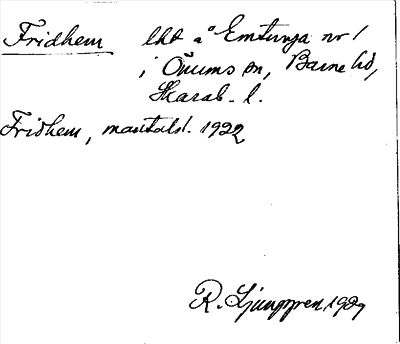 Fridhem lht å Emtunga nr 1
i Önums sn, Barne hd,
Skarab. l.
Fridhem, mantalsl. 1922
R. Ljunggren 1929